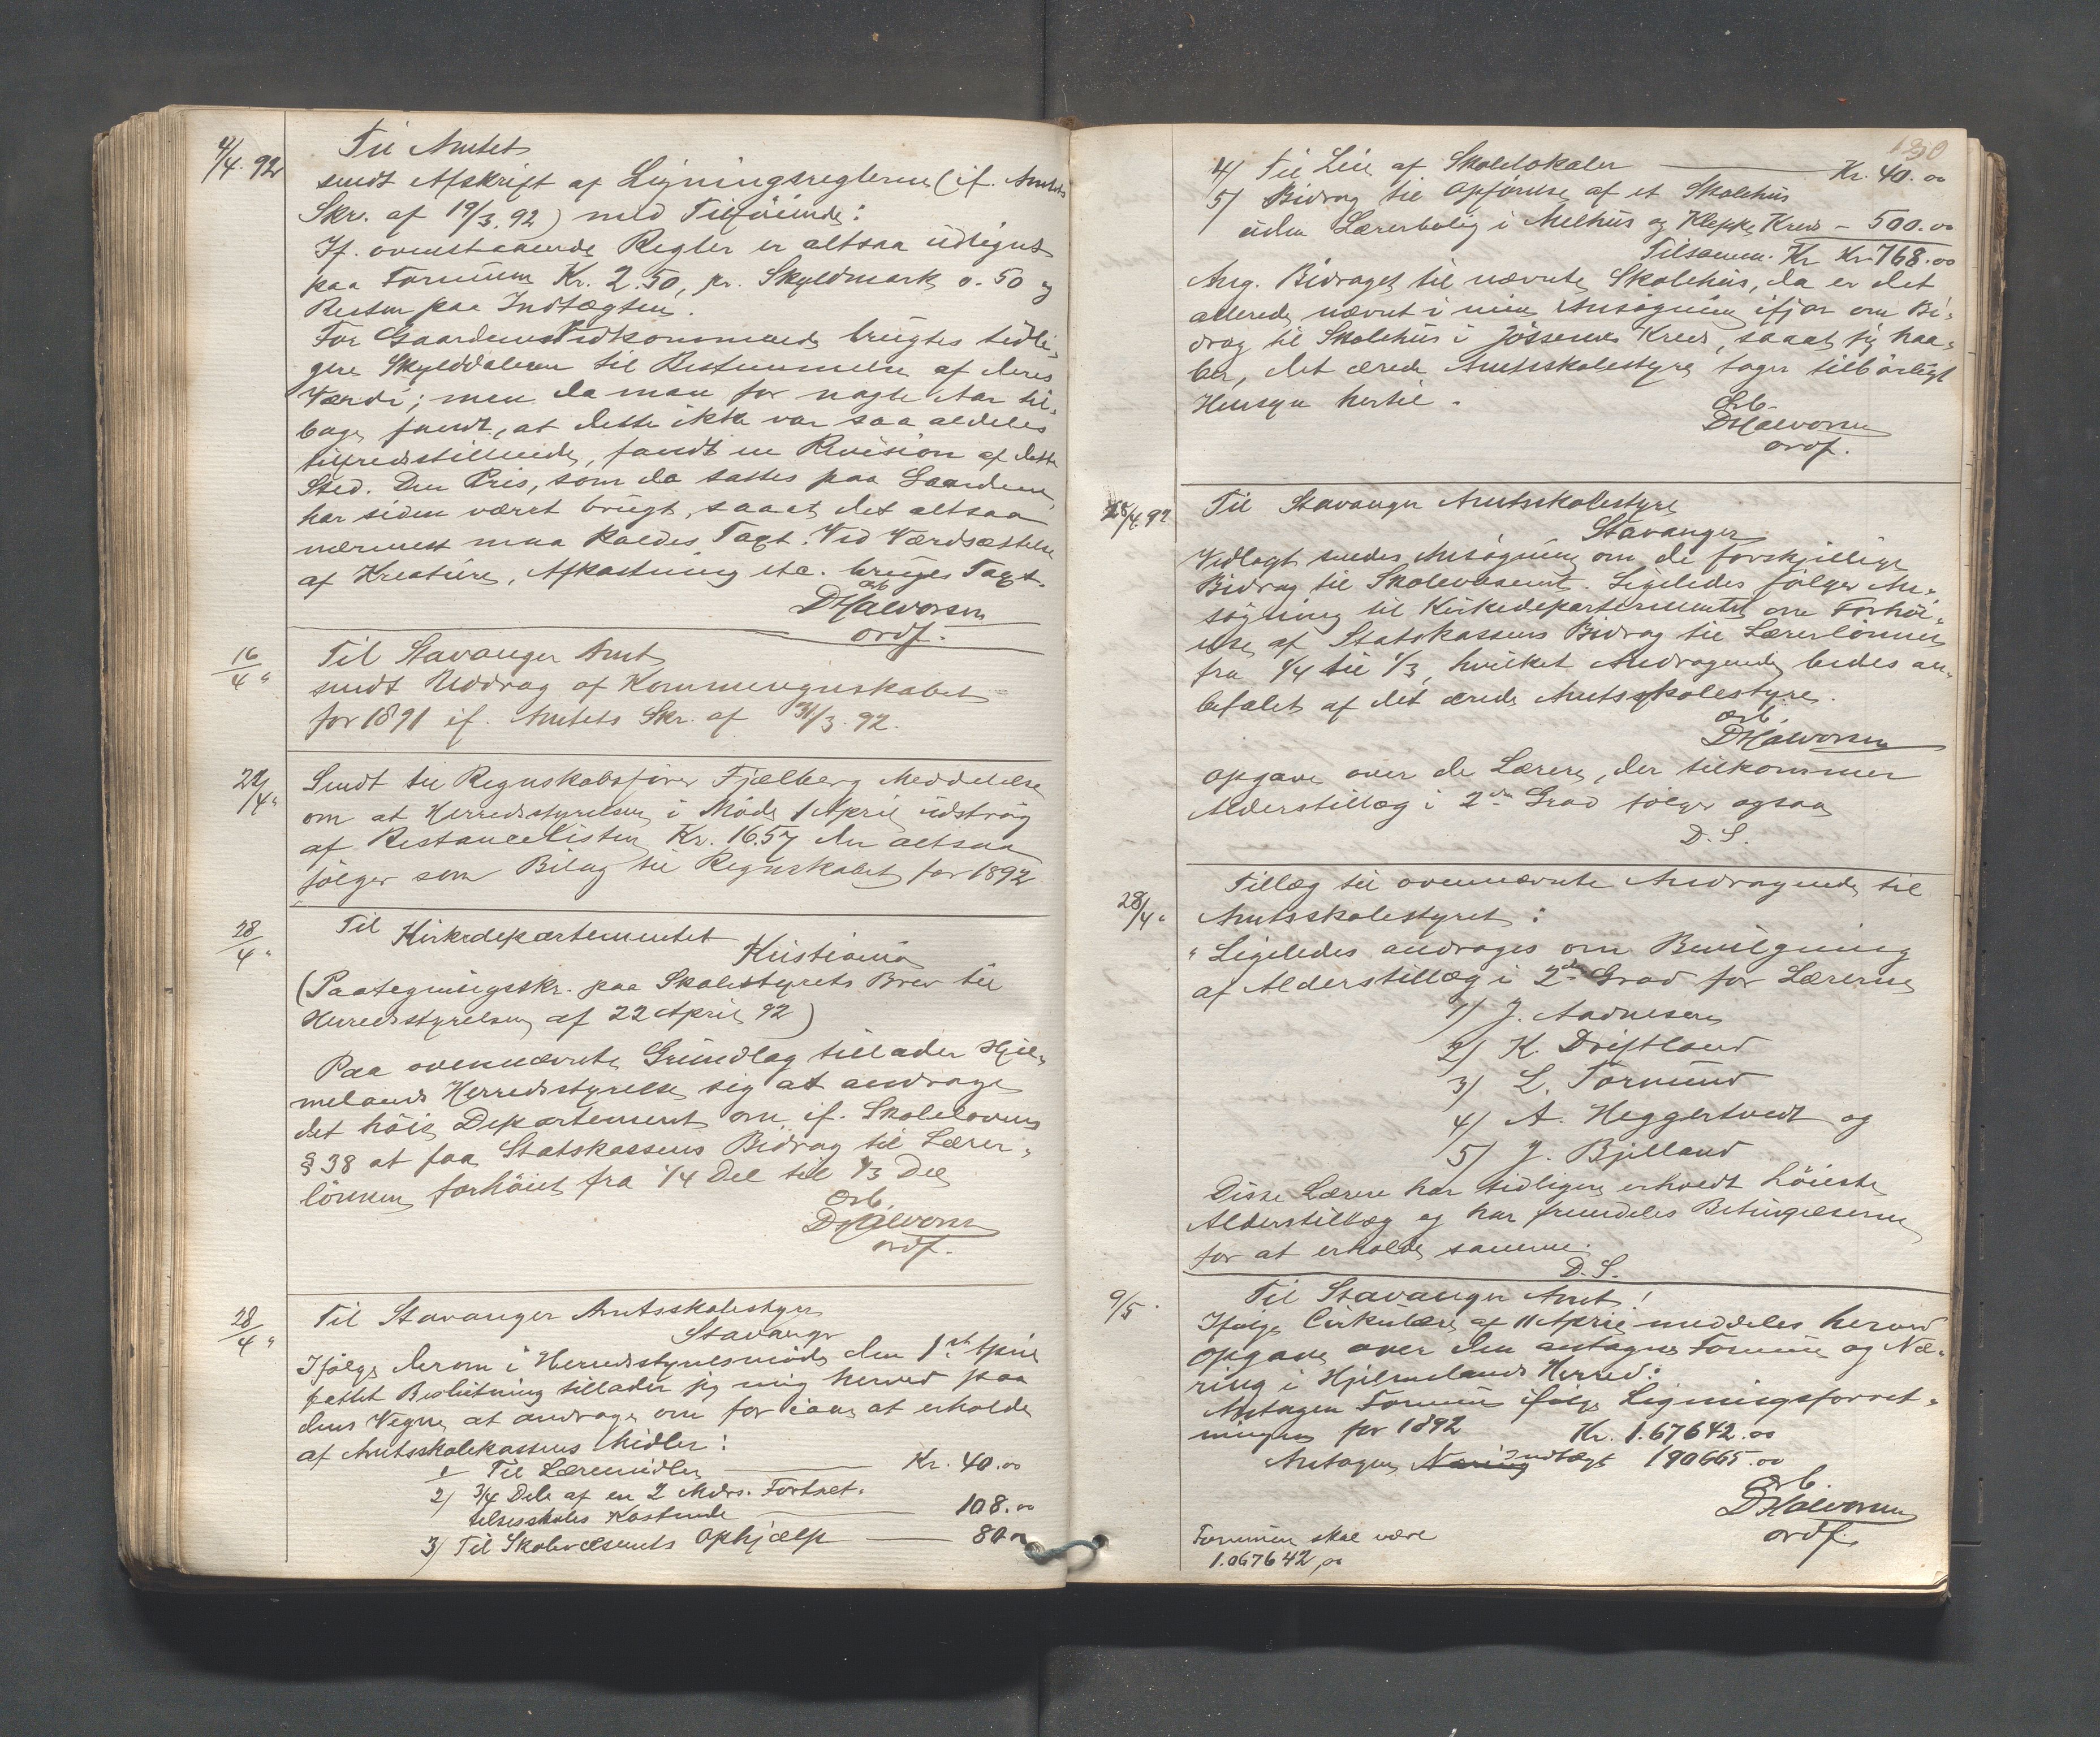 4/4. 92
Til Amtet
sendt Afskrift af Ligningsreglerne (if. Amtets
Skr. af 19/3. 92) med Tilføiende:
If. ovenstaaende Regler er altsaa udlignet
paa Formuen Kr. 2.50, pr. Skyldmark 0.50 og
Resten paa Indtægten.
For Gaardenes Vedkommende brugtes tidli-
gere Skylddaleren til Bestemmelse af deres
Værdi; men da man for nogle Aar til-
bage fandt, at dette ikke var saa aldeles
tilfredsstillende, fandt en Revision af dette
Sted. Den Pris, som da sattes paa Gaardene,
har siden været brugt, saaat det altsaa
nærmest maa kaldes Taxt. Ved Værdsættelse
af Kreature, Afkastning etc. bruges Taxt.
Ærb.
DHalvorsen
ordf.
16/4 "
Til Stavanger Amt
sendt Uddrag af Kommuneregnskabet
for 1891 if. Amtets Skr. af 31/3. 92.
22/4 "
Sendt til Regnskabsfører Fjælberg Meddelelse
om at Herredsstyrelsen i Møde 1 April udstrøg
af Restancelisten Kr. 16.57 der altsaa
følger som Bilag til Regnskabet for 1892
28/4 "
Til Kirkedepartementet
Kristiania
(Paategningsskr. paa Skolestyrets Brev til
Herredsstyrelsen af 22 April 92)
Paa ovennævnte Grundlag tillader Hjel-
melands Herredsstyrelse sig at andrage
det høie Departement om if. Skolelovens
§ 38 at faa Statskassens Bidrag til Lærer-
lønnen forhøiet fra 1/4 Del til 1/3 Del
Ærb.
DHalvorsen
ordf.
28/4 "
Til Stavanger Amtsskolestyre
Stavanger
Ifølge derom i Herredsstyrelsmøde den 1ste April
fattet Beslutning tillader jeg mig herved paa
dens Vegne at andrage om for iaar at erholde
af Amtsskolekassens Midler:
1/ Til Læremidler Kr. 40.00
2) 3/4 Dele af en 2 Mdrs. Fortsæt-
telsesskoles Kostende 108.00
3) Til Skolevæsenets Ophjælp 80.00
130
4) Til Leie af Skolelokaler Kr. 40.00
5) Bidrag til Opførelse af et Skolehus
uden Lærerbolig i Melhus og Kleppe Kreds - 500.00
Tilsamm. Kr Kr. 768.00
Ang. Bidraget til nævnte Skolehus, da er det
allerede nævnt i min Ansøgning ifjor om Bi-
drag til Skolehus i Jøssenes Kreds, saaat jeg haa-
ber, det ærede Amtsskolestyre tager tilbørligt
Hensyn hertil.
Ærb.
DHalvorsen
ordf.
28/4. 92
Til Stavanger Amtsskolestyre
Stavanger
Vedlagt sendes Ansøgning om de forskjellige
Bidrag til Skolevæsenet. Ligeledes følger An-
søgning til Kirkedepartementet om Forhøi-
else af Statskassens Bidrag til Lærerlønnen
fra 1/4 til 1/3, hvilket Andragende bedes an-
befalet af det ærede Amtsskolestyre.
Ærb.
DHalvorsen
Opgave over de Lærere, der tilkommer
Alderstillæg i 2den Grad følger ogsaa
D. S.
28/4 "
Tillæg til ovennævnte Andragende til
Amtsskolestyret:
"Ligeledes andrages om Bevilgning
af Alderstillæg i 2den Grad for Lærerne
1) J. Aadnesen
2) K. Driftland
3) L. Tormund
4) A. Heggertvedt og
5) J. Bjelland
Disse Lærere har tidligere erholdt høieste
Alderstillæg og har fremdeles Betingelserne
for at erholde samme.
D. S.
9/5.
Til Stavanger Amt!
Ifølge Cirkulære af 11 April meddeles herved
Opgave over den antagne Formue og Næ-
ring i Hjelmelands Herred:
Antagen Formue ifølge Ligningsforret-
ningen for 1892 Kr. 1.67642.00
Antagen Næring Indtægt 190665.00
Ærb.
DHalvorsen
ordf.
Formuen skal være
1.067642,00